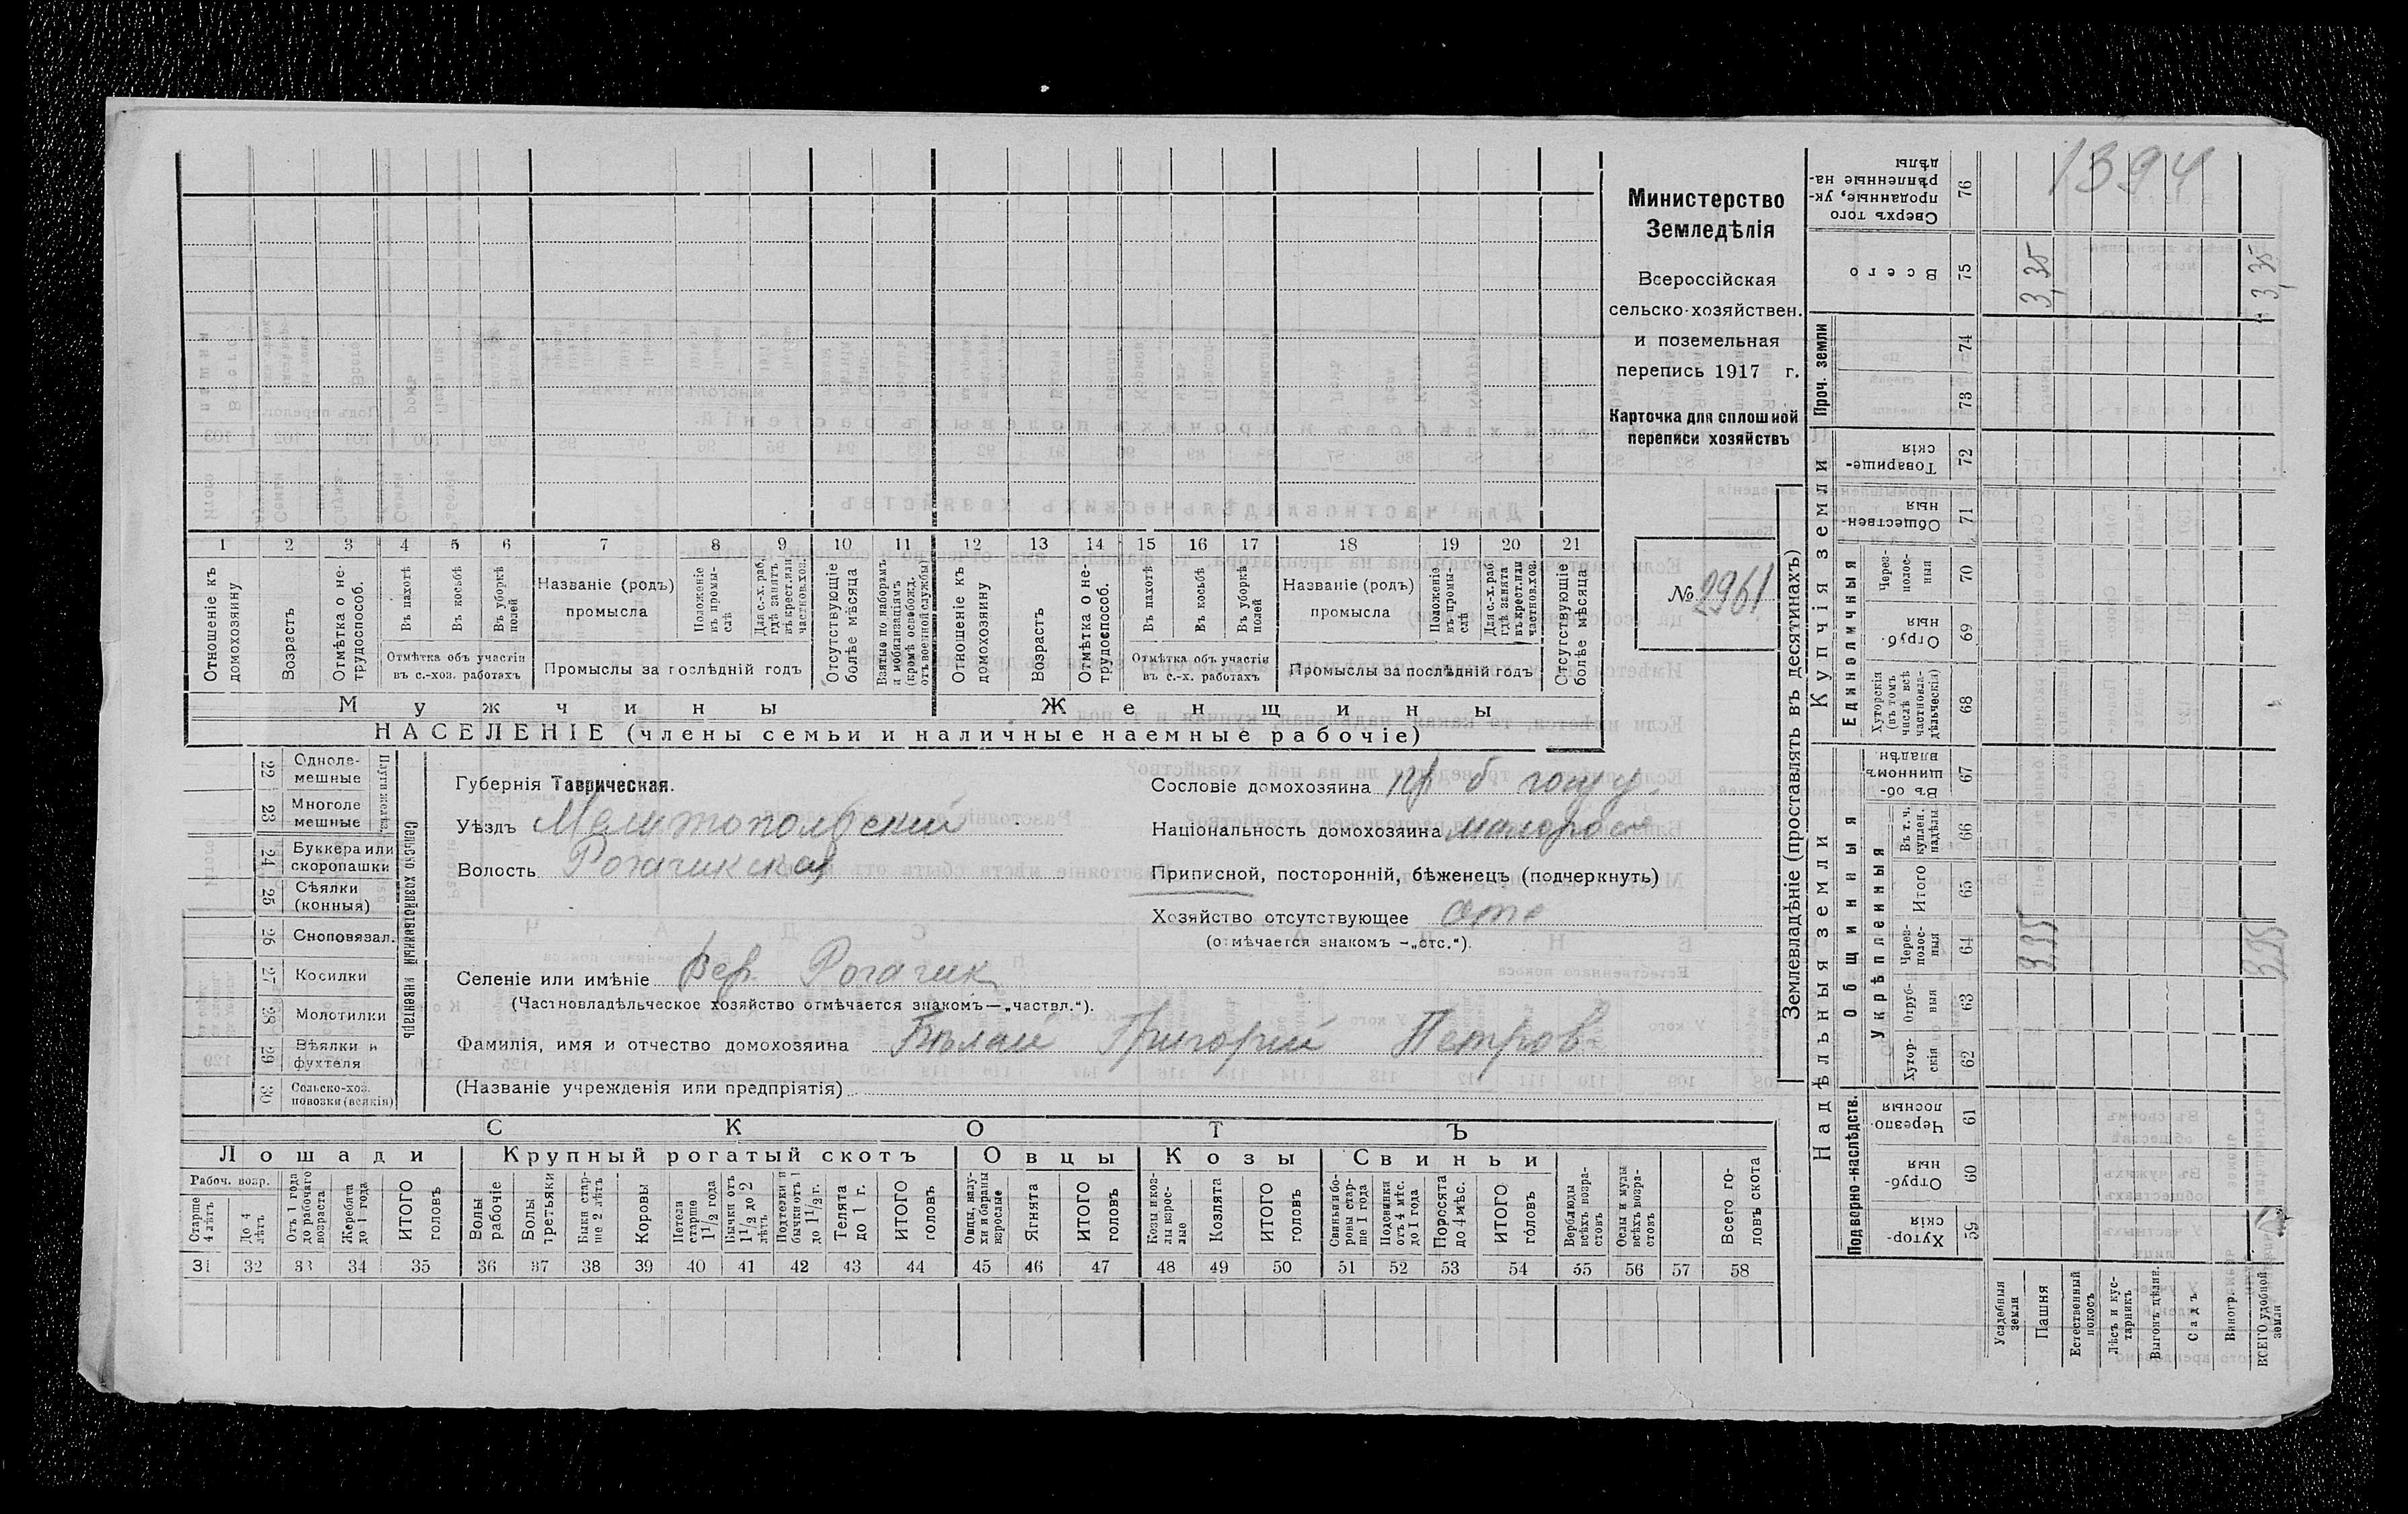 1394
Министерство
Земледѣлія
Всероссійская
сельско-хозяйствен.
и поземельная
перепись 1917 г.
Карточка для сплошной
переписи хозяйствъ
№ 2961
1 2 3 4 5 6 7 8 9 10 11 12 13 14 15 16 17 18 19 20 21
Отношеніе къ домохозяину
Возрастъ
Отмѣтка о не-трудоспособ.
Въ пахотѣ
Въ косьбѣ
Въ уборкѣ полей
Отмѣтка объ участіи
въ с.-хоз. работахъ
Названіе (родъ)
промысла
Положеніе въ промы-слѣ
Для с.-х. раб. гдѣ занятъ въ крест. или частнов. хоз.
Промыслы за послѣдній годъ
Отсутствующіе болѣе мѣсяца
Взятые по наборамъ и мобилизаціямъ (кромѣ освобожд. отъ военной службы)
Отношеніе къ домохозяину
Возрастъ
Отмѣтка о не-трудоспособ.
Въ пахотѣ
Въ косьбѣ
Въ уборкѣ полей
Отмѣтка объ участіи
въ с.-х. работахъ
Названіе (родъ)
промысла
Положеніе въ промы-слѣ
Для с.-х. раб. гдѣ занята въ крест. или частнов. хоз.
Промыслы за послѣдній годъ
Отсутствующіе болѣе мѣсяца
Мужчины
Женщины
НАСЕЛЕНІЕ (члены семьи и наличные наемные рабочіе)
22 Одноле-мешные
23 Многоле мешные
24 Буккера или скоропашки
25 Сѣялки (конныя)
26 Сноповязал.
27 Косилки
28 Молотилки
29 Вѣялки и фухтеля
30 Сельско-хоз. повозки (всякія)
Сельско хозяйственный инвентарь
Губернія Таврическая.
Уѣздъ Мелитопольский
Волость Рогачикская
Селеніе или имѣніе Вер. Рогачик
(Частновладѣльческое хозяйство отмѣчается знакомъ—„частвл.“).
Фамилія, имя и отчество домохозяина Григорий Петров
(Названіе учрежденія или предпріятія)
Сословіе домохозяина
Національность домохозяина малорос
Приписной, посторонній, бѣженецъ (подчеркнуть)
Хозяйство отсутствующее отс
(отмѣчается знакомъ —„отс.“).
СКОТЪ
Лошади
Крупный рогатый скотъ
Овцы
Козы
Свиньи
Рабоч. возр.
Старше 4 лѣтъ
До 4 лѣтъ
Отъ 1 года до рабочаго возраста
Жеребята до 1 года
ИТОГО головъ
Волы рабочіе
Волы третьяки
Быки стар-ше 2 лѣтъ
Коровы
Нетели старше 1 1/2 года
Бычки отъ 1 1/2 до 2 лѣтъ
Подтелки и бычки отъ 1 до 1 1/2 г.
Телята до 1 г.
ИТОГО головъ
Овцы, валу-хи и бараны взрослые
Ягнята
ИТОГО головъ
Козы и коз-лы взрос-лые
Козлята
ИТОГО головъ
Свиньи и бо-ровы стар-ше 1 года
Подсвинки отъ 4 мѣс. до 1 года
Поросята до 4 мѣс.
ИТОГО головъ
Верблюды всѣхъ возра-стовъ
Ослы и мулы всѣхъ возра-стовъ
Всего го-ловъ скота
31 32 33 34 35 36 37 38 39 40 41 42 43 44 45 46 47 48 49 50 51 52 53 54 55 56 57 58
Землевладѣніе (проставлять въ десятинахъ)
Надѣльныя земли
Купчія земли
Проч. земли
Подворно-наслѣдств.
Общинныя
Укрѣпленныя
Единоличныя
59 Хутор-скія
60 Отруб-ныя
61 Черезпо-лосныя
62 Хутор-скія
63 Отруб-ныя
64 Через-полос-ныя
65 Итого
66 Въ т. ч. куплен. надѣлы
67 Въ об-щинномъ владѣн.
68 Хуторскія (въ томъ числѣ всѣ частновла-дѣльческія)
69 Отруб-ныя
70 Через-полос-ныя
71 Обществен-ныя
72 Товарище-скія
73
74
75 Всего
76 Сверхъ того проданные, ук-рѣпленные на-дѣлы
Усадебныя земли
Пашня
Естественный покосъ
Лѣсъ и кус-тарникъ
Выгонъ, цѣлин.
Садъ
Виногр.
ВСЕГО удобной земли
3,35
3,35
3,35
3,35